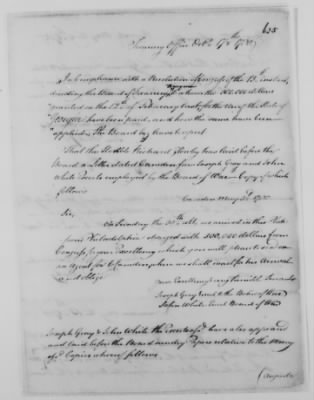 635
Treasury Office Octr. 17th 1780
In Compliance with a Resolution of Congress of the 13th instant,
directing the Board of Treasury to whom the 500,000 dollars
granted on the of February last for the Use of the State of
Georgia have been paid, and how the same have been
applied, The Board beg leave to report
That the Honble Richard Howley has laid before the
Board a Letter dated Camden from Joseph Gray and John
White employed by the Board of War Copy of which
follows
Camden May 31st 1780
Sir,
On Tuesday the 30th ulto we arrived in this State
from Philadelphia charged with 500,000 dollars from
Congress, to your Excellency which you will please to send
an Agent for to Camden where we shall wait for his Arrival
Your Excellency's very humble Servants
Joseph Gray sent by the Board of War
John White sent Board of War
Joseph Gray & John White the have also appeared
and laid before the Board sundry Papers relative to the Money
of Copies whereof follows.
(Augusta